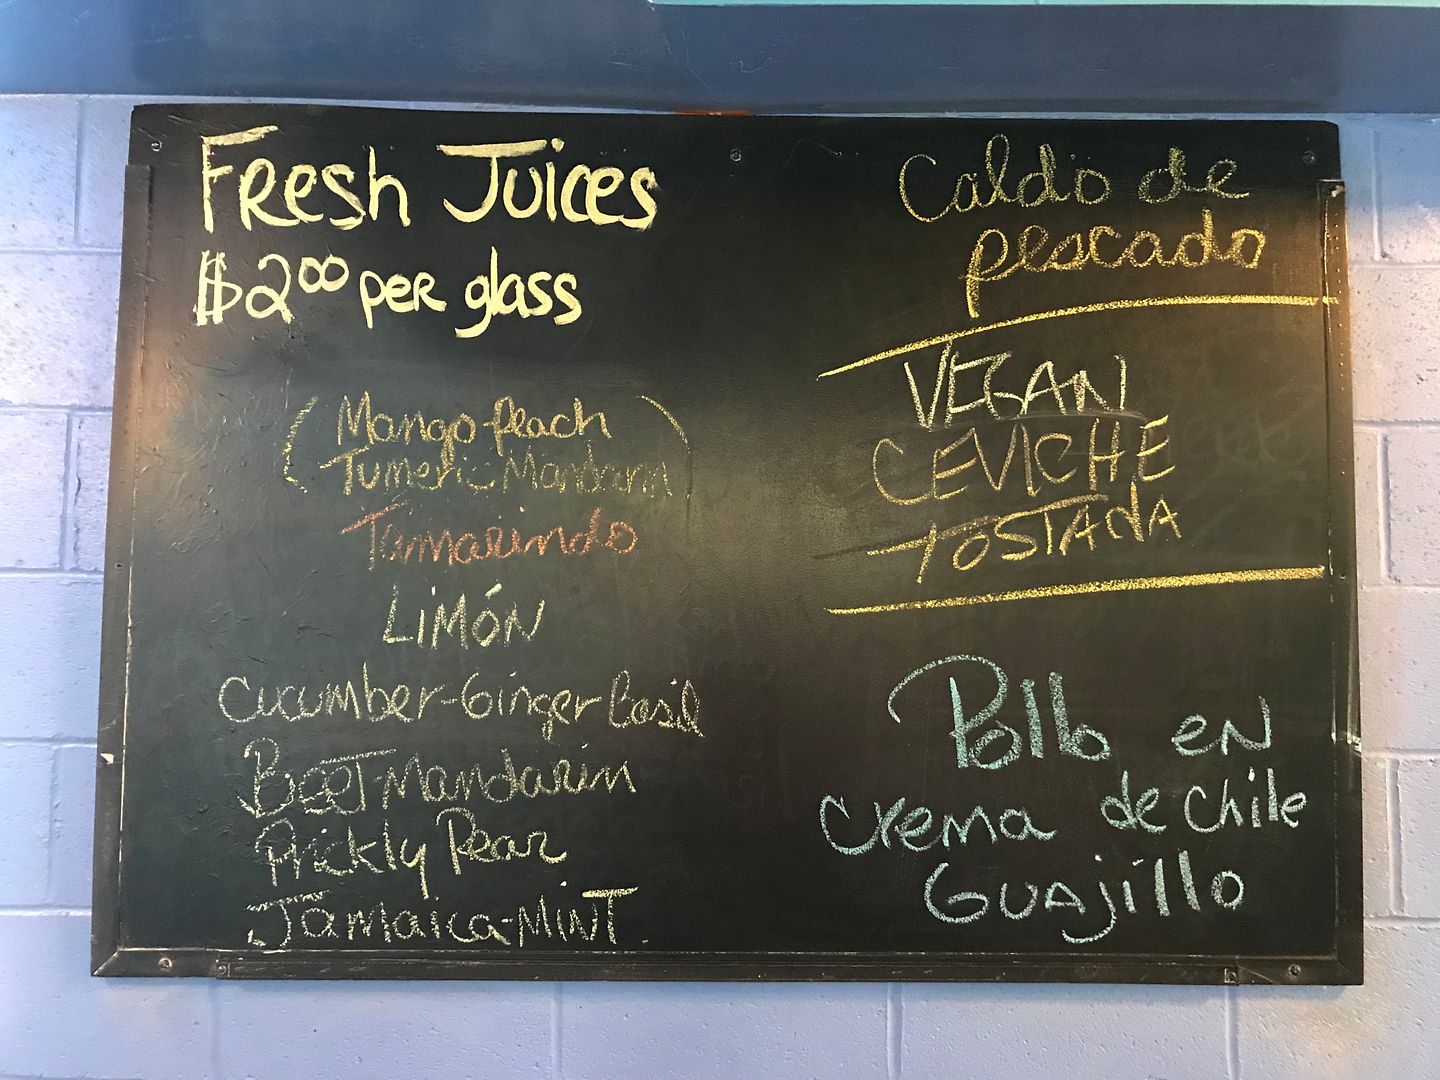 Fresh Juices
$2⁰⁰ per glass
(Mango-Peach
Tumeric-Mandarin)
Tamarindo
LIMÓN
Cucumber-Ginger Basil
Beet-Mandarin
Prickly Pear
Jamaica-MINT
Caldo de
pescado
VEGAN
CEVICHE
TOSTADA
Pollo en
crema de Chile
Guajillo